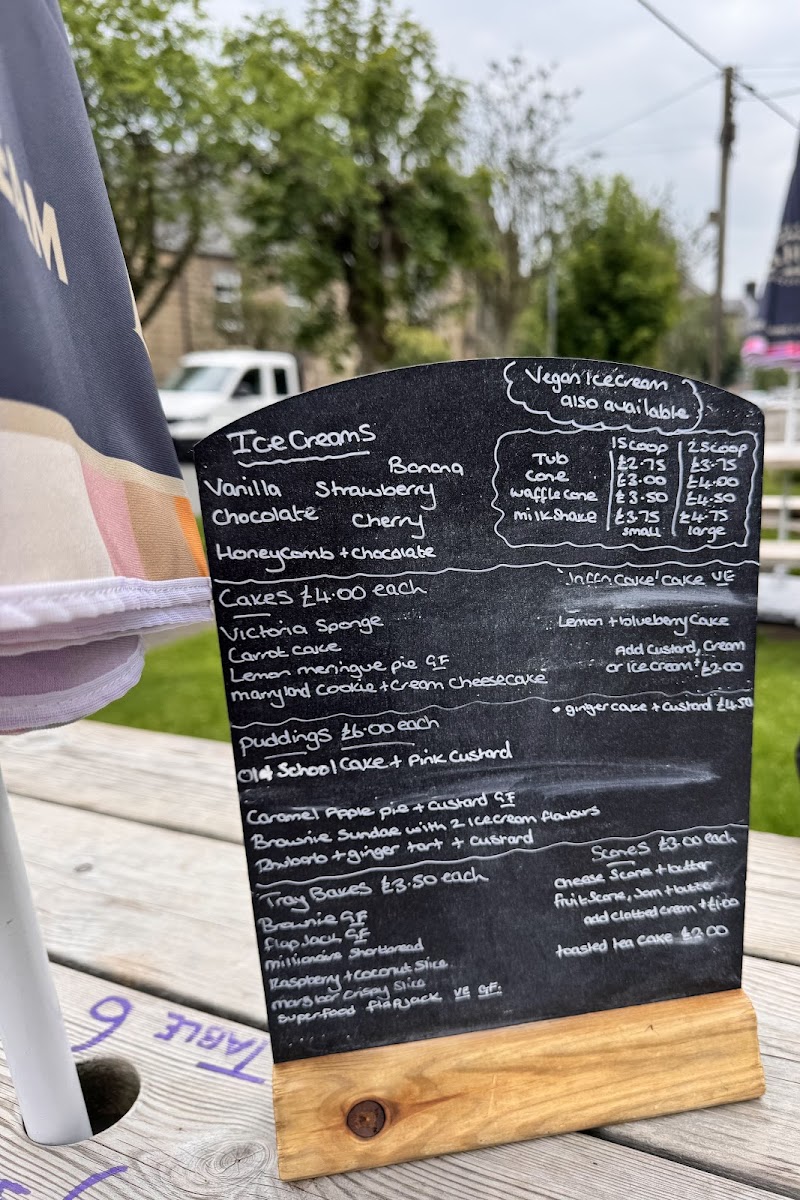 EAM
Vegan Icecream
also available
Ice Creams
Banana
Vanilla Strawberry
Chocolate Cherry
Honeycomb + chocolate
1 Scoop 2 Scoop
Tub £2.75 £3.75
Cone £3.00 £4.00
waffle cone £3.50 £4.50
milkshake £3.75 £4.75
small large
Cakes £4.00 each
Victoria Sponge
Carrot cake
Lemon meringue pie GF
maryland cookie + cream cheesecake
'Jaffa Cake' cake VE
Lemon + blueberry cake
Add Custard, Cream
or Ice cream + £2.00
• ginger cake + custard £4.50
Puddings £6.00 each
Old School Cake + Pink Custard
Caramel Apple pie + custard GF
Brownie Sundae with 2 icecream flavours
Rhubarb + ginger tart + custard
Tray Bakes £3.50 each
Brownie GF
Flap Jack GF
millionaire Shortbread
Raspberry + coconut slice
mars bar crispy slice
superfood flapjack ve GF.
Scones £3.00 each
cheese Scone + butter
fruit Scone, Jam + butter
add clotted cream + £1.00
toasted tea cake £2.00
TABLE 6